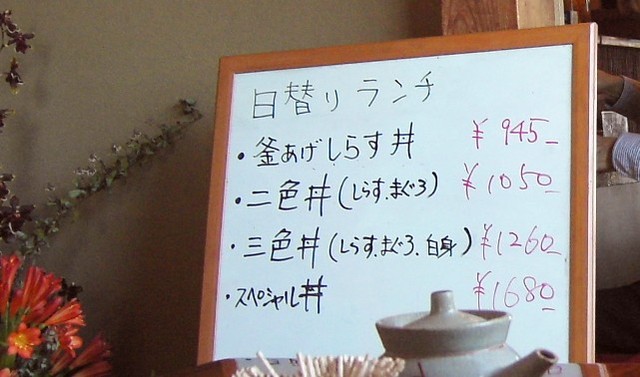 日替りランチ
・釜あげしらす丼 ¥945-
・二色丼(しらす、まぐろ) ¥1050
・三色丼(しらす、まぐろ、白身) ¥1260
・スペシャル丼 ¥1680